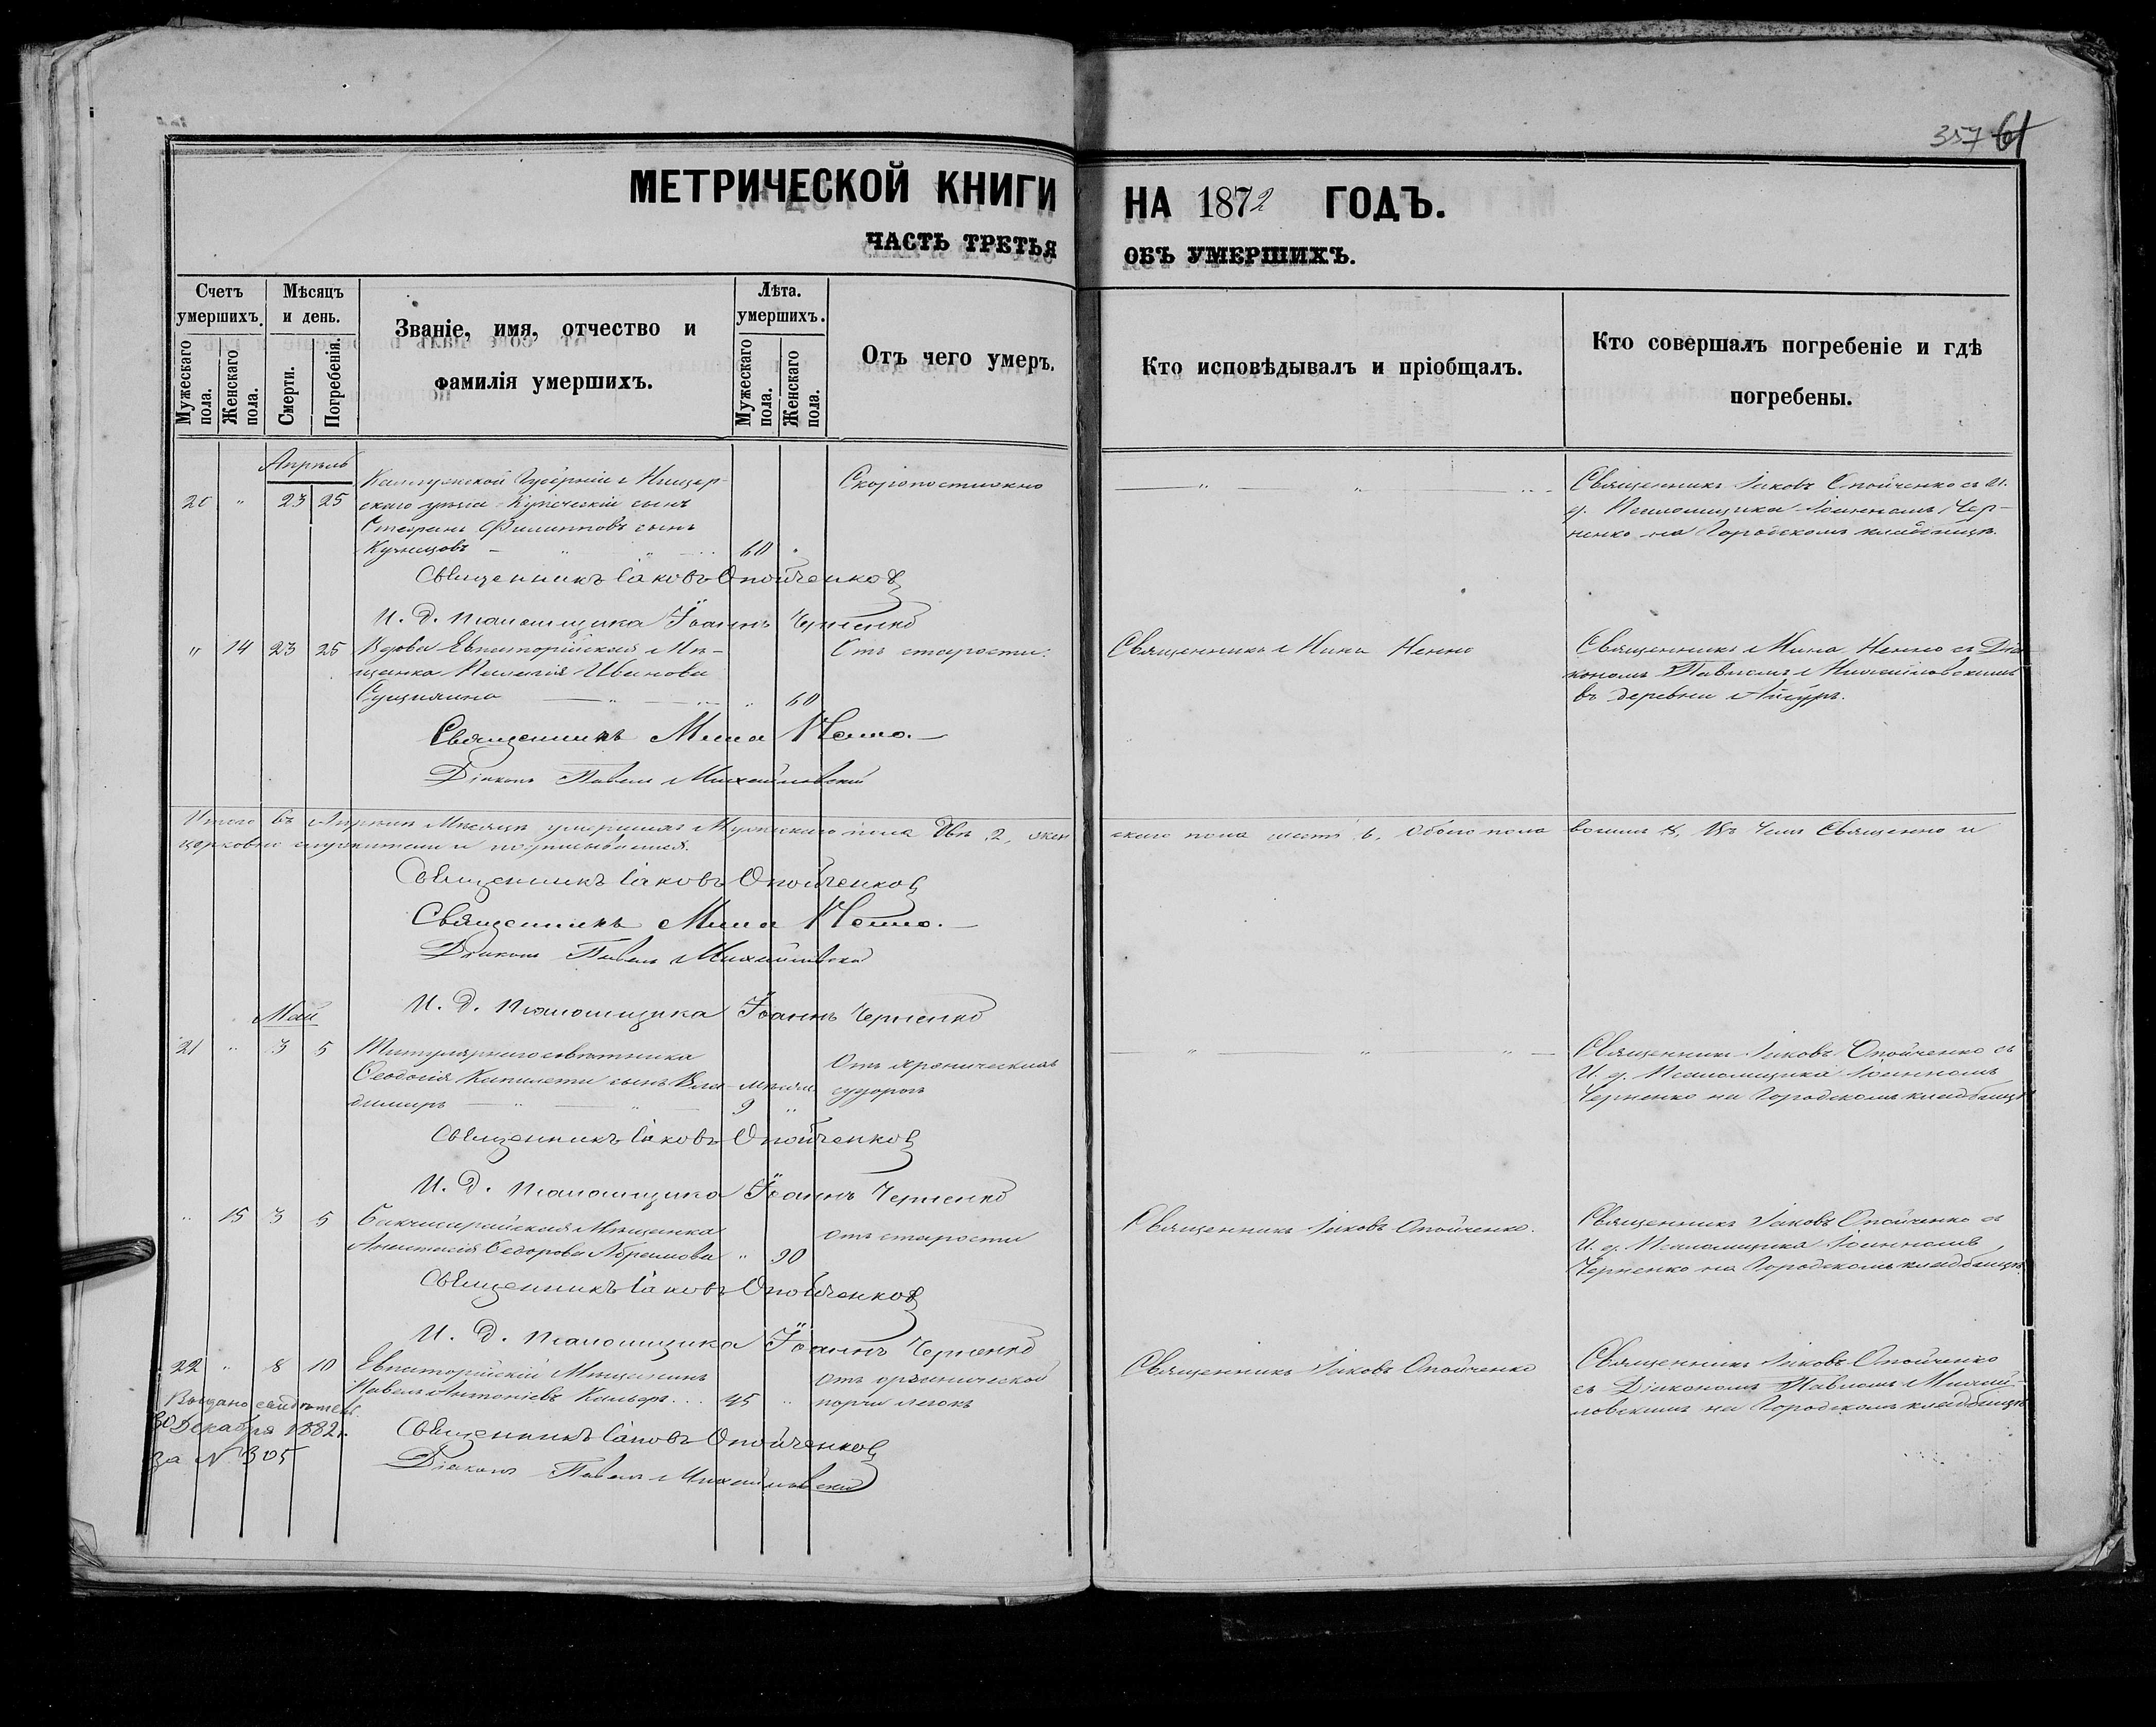 357 61
МЕТРИЧЕСКОЙ КНИГИ НА 1872 ГОДЪ.
ЧАСТЬ ТРЕТЬЯ ОБЪ УМЕРШИХЪ.
Счетъ умершихъ.
Мужескаго пола.
Женскаго пола.
Мѣсяцъ и день.
Смерти.
Погребенія.
Званіе, имя, отчество и
фамилія умершихъ.
Лѣта.
умершихъ.
Мужескаго пола.
Женскаго пола.
Отъ чего умеръ.
Кто исповѣдывалъ и пріобщалъ.
Кто совершалъ погребеніе и гдѣ
погребены.
Апрѣль
20 " 23 25
Калужской Губерніи
скаго уѣзда Купеческій сынъ
Стефанъ Филиптовъ сынъ
Кузнецовъ 60 "
Скоропостижно
Священникъ Іаковъ Опойченко съ И.
д. Псаломщика Іоанномъ Чер-
ненко на Городскомъ кладбищѣ.
Священникъ Іаковъ Опойченко
И. д. псаломщика Іоаннъ Черненко
" 14 23 25
Вдова Евпаторійская Мѣ-
щанка Пелагія Иванова
" 60
Отъ старости.
Священникъ Мина Ненно
Священникъ Мина Ненно съ Діа
кономъ Павломъ Михайловскимъ
въ деревни
Священникъ Мина Ненно.
Діаконъ Павелъ Михайловскій
Итого въ Апрѣлѣ Мѣсяцѣ умершихъ Мужескаго пола два 2, жен
скаго пола шесть 6, обоего пола восемь 8, Въ чемъ Священно и
церковно служители и подписываемся.
Священникъ Іаковъ Опойченко
Священникъ Мина Ненно.
Діаконъ Павелъ Михайловскій
И. д. Псаломщика Іоаннъ Черненко
Май
21 " 3 5
Титулярнаго совѣтника
Феодосія сынъ Вла-
димиръ мѣсяц. 9 "
Отъ хроническихъ
судорогъ
Священникъ Іаковъ Опойченко съ
И. д. Псаломщика Іоанномъ
Черненко на Городскомъ кладбищѣ
Священникъ Іаковъ Опойченко
И. д. псаломщика Іоаннъ Черненко
" 15 3 5
Бахчисарайская Мѣщанка
Анастасія Федорова " 90
Отъ старости
Священникъ Іаковъ Опойченко.
Священникъ Іаковъ Опойченко съ
И. д. Псаломщика Іоанномъ
Черненко на Городскомъ кладбищѣ.
Священникъ Іаковъ Опойченко
И. д. псаломщика Іоаннъ Черненко
22 " 8 10
Евпаторійскій Мѣщанинъ
Павелъ Антоніевъ 45 "
Отъ органической
порчи легкъ
Священникъ Іаковъ Опойченко
Священникъ Іаковъ Опойченко
съ Діакономъ Павломъ Михай-
ловскимъ на Городскомъ кладбищѣ
Выдано свидѣтел.
30 Декабря 1882 г.
за № 305
Священникъ Іаковъ Опойченко
Діаконъ Павелъ Михайловскій